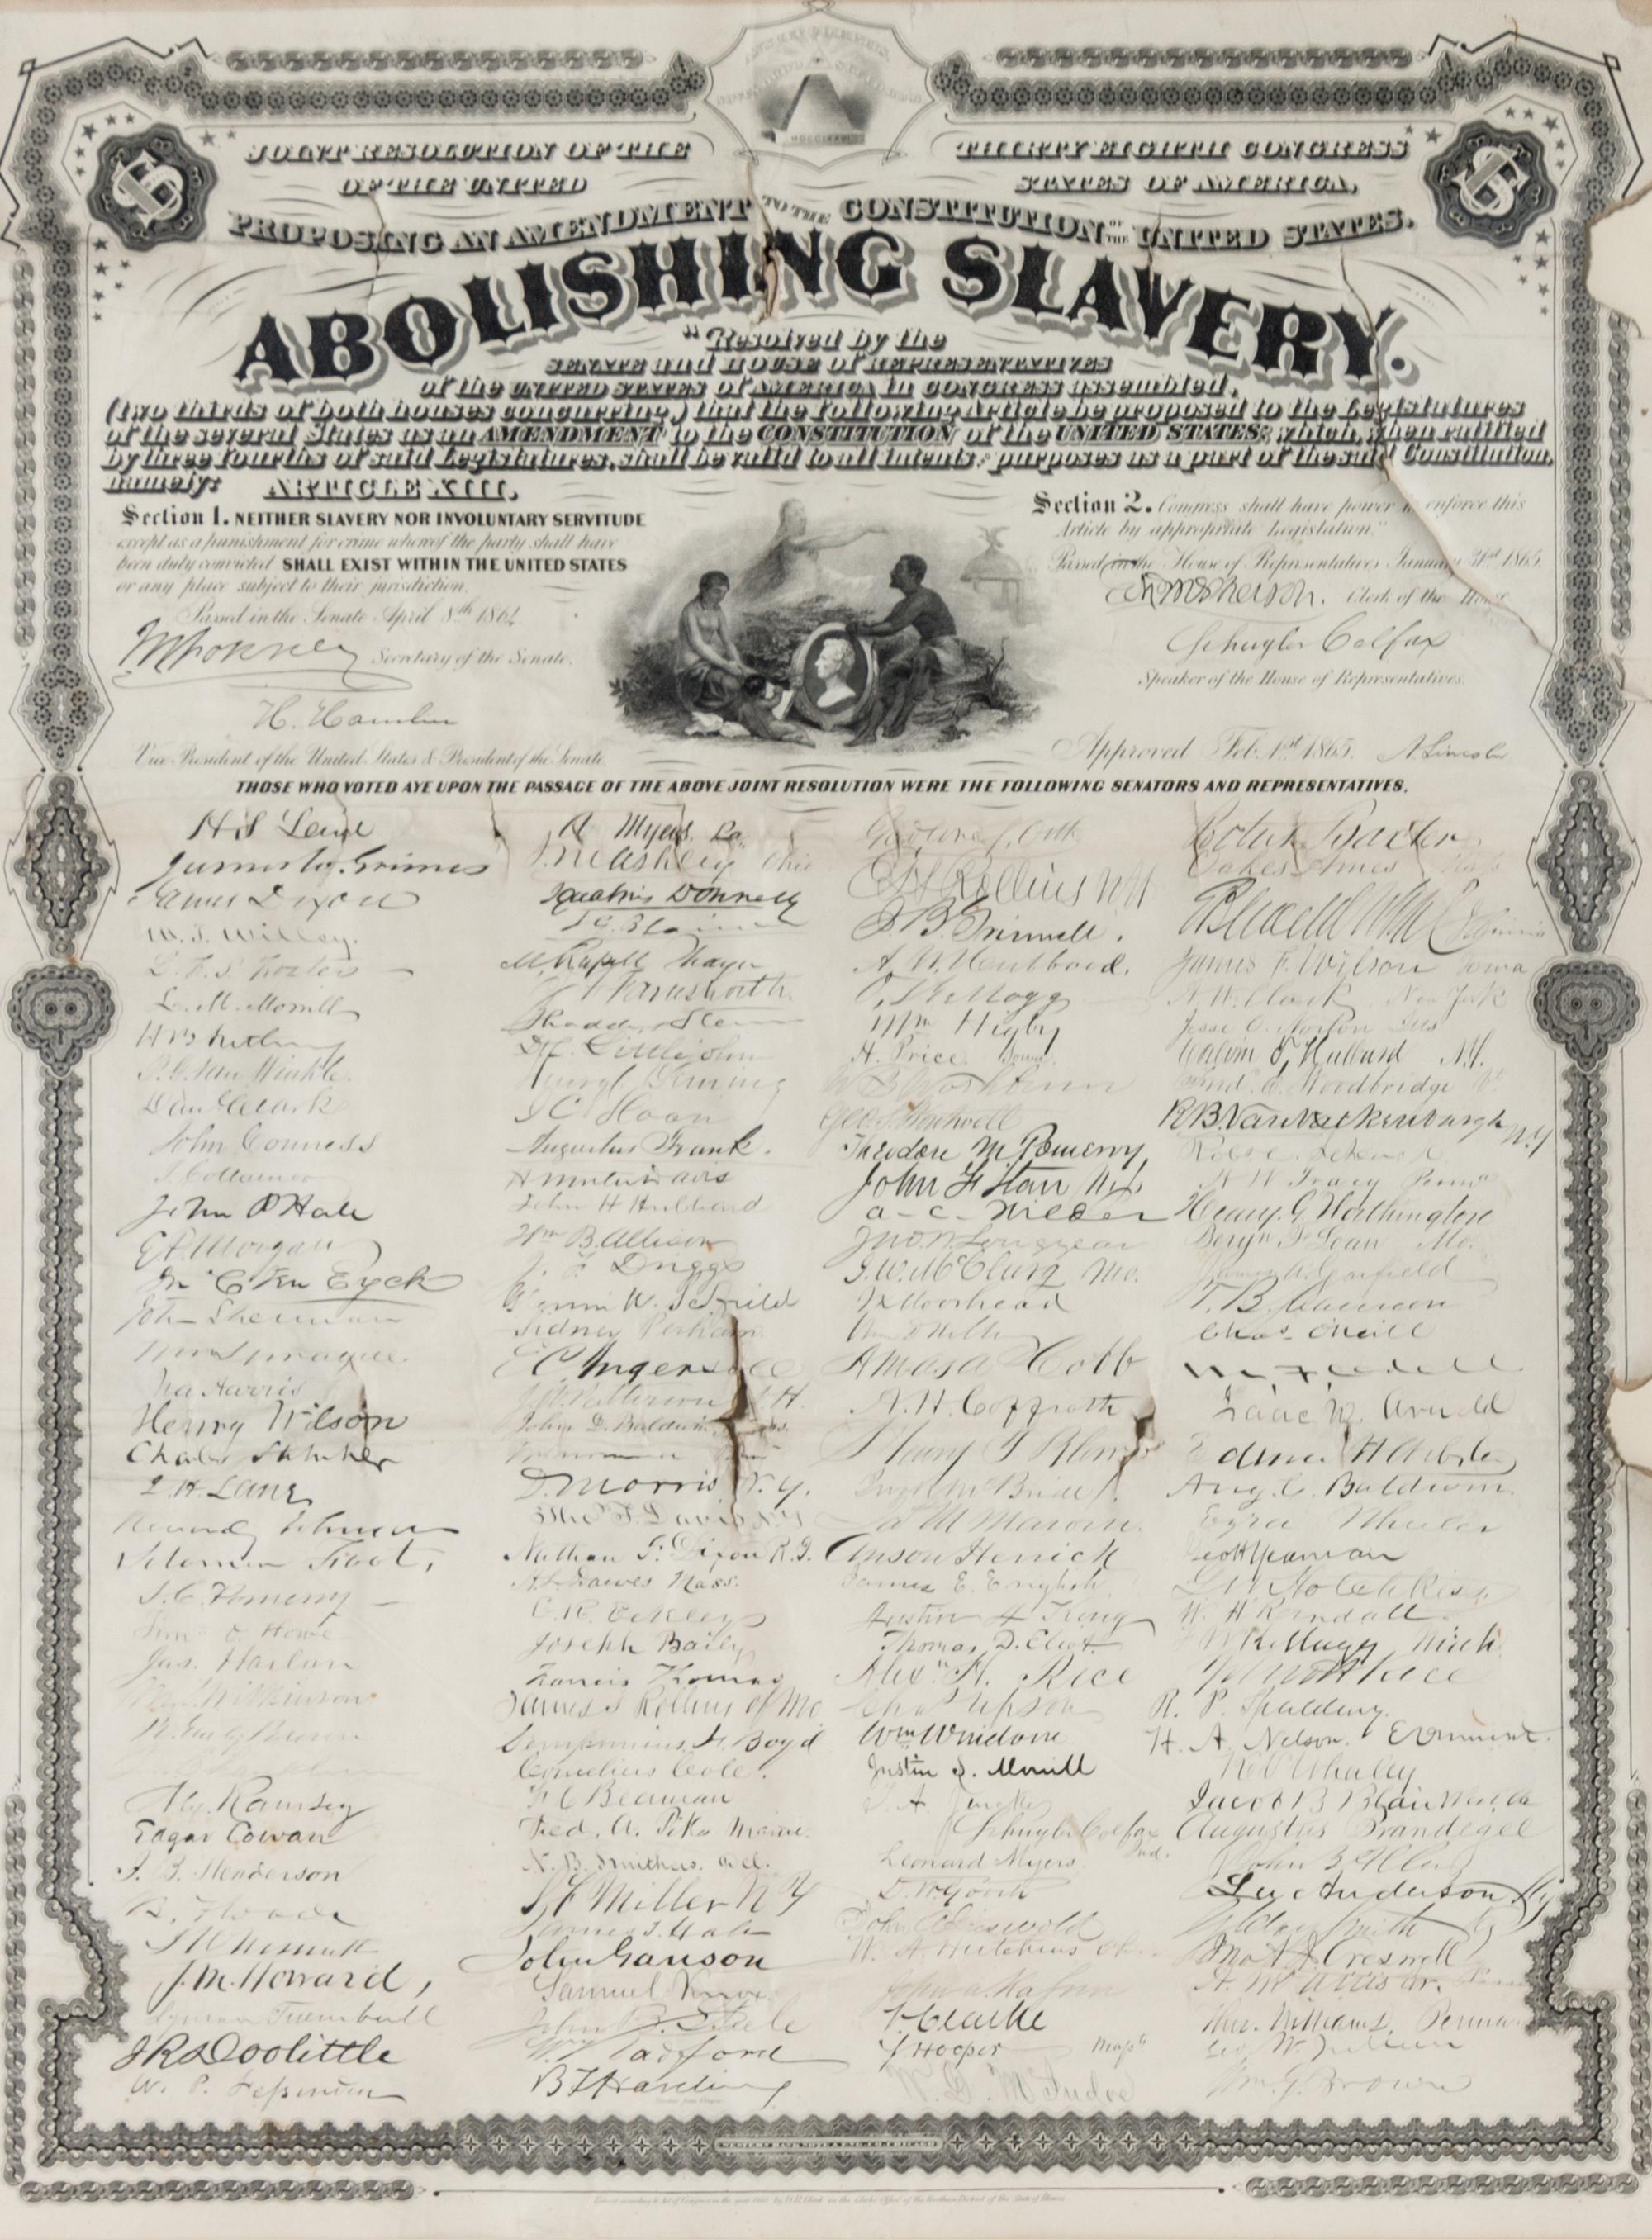 JOINT RESOLUTION OF THE THIRTY EIGHTH CONGRESS
OF THE UNITED STATES OF AMERICA,
PROPOSING AN AMENDMENT TO THE CONSTITUTION OF THE UNITED STATES.
ABOLISHING SLAVERY.
"Resolved by the
SENATE and HOUSE of REPRESENTATIVES
of the UNITED STATES of AMERICA in CONGRESS assembled,
(two thirds of both houses concurring,) that the following Article be proposed to the Legislatures
of the several States as an AMENDMENT to the CONSTITUTION of the UNITED STATES; which, when ratified
by three fourths of said Legislatures, shall be valid to all intents & purposes as a part of the said Constitution,
namely: ARTICLE XIII.
Section 1. NEITHER SLAVERY NOR INVOLUNTARY SERVITUDE
except as a punishment for crime whereof the party shall have
been duly convicted SHALL EXIST WITHIN THE UNITED STATES
or any place subject to their jurisdiction.
Passed in the Senate April 8th 1864
Secretary of the Senate.
H. Hamlin
Vice President of the United States & President of the Senate.
Section 2. Congress shall have power to enforce this
Article by appropriate legislation."
Passed in the House of Representatives January 31st 1865.
Clerk of the House
Schuyler Colfax
Speaker of the House of Representatives.
Approved Feb. 1st 1865. A. Lincoln
THOSE WHO VOTED AYE UPON THE PASSAGE OF THE ABOVE JOINT RESOLUTION WERE THE FOLLOWING SENATORS AND REPRESENTATIVES.
James W. Grimes
James Dixon
W. T. Willey.
L. F. S. Foster
L. M. Morrill
P. G. Van Winkle.
Dan Clark
John Conness
J. Collamer
John P Hale
E. D. Morgan
Jn C. Ten Eyck
John Sherman
Wm Sprague.
Ira Harris
Henry Wilson
Charles Sumner
J. H. Lane
Reverdy Johnson
Solomon Foot,
S. C. Pomeroy
Tim O. Howe
Jas. Harlan
M. S. Wilkinson
B. Gratz Brown
Alex. Ramsey
Edgar Cowan
J. B. Henderson
B. F. Wade
J W Nesmith
J. M. Howard,
Lyman Trumbull
J R Doolittle
W. P. Fessenden
A Myers. Pa.
J. M. Ashley Ohio
Ignatius Donnelly
J. G. Blaine
M. Russell Thayer
J F Farnsworth
Thaddeus Stevens
D. C. Littlejohn
Henry C Deming
I C Sloan
Augustus Frank.
H Winter Davis
John H Hubbard
Wm B. Allison
J. F. Driggs
Glenni W. Scofield
Sidney Perham
E C Ingersoll
J. W. Patterson N.H.
John D. Baldwin, Mass.
D. Morris N.Y.
Tho T. Davis N.Y
Nathan F. Dixon R.I.
H. L. Dawes Mass.
E. R. Eckley
Joseph Baily
Francis Thomas
James S Rollins of Mo
Sempronius H. Boyd
Cornelius Cole.
F C Beaman
Fred. A. Pike Maine.
N. B. Smithers. Del.
S F Miller N Y
James T. Hale
John Ganson
Samuel Knox.
John B. Steele
W. Radford
B F Harding
Godlove S. Orth
E H Rollins N H
J. B. Grinnell.
A. W. Hubbard.
O. Kellogg
Wm Higby
H. Price Iowa
W B Washburn
Theodore M Pomeroy
John F Starr N.J.
A. C. Wilder
Jno. W. Longyear
J. W. McClurg Mo.
J K Moorhead
Amasa Cobb
A. H. Coffroth
Henry T Blow
D M Marvin.
Anson Herrick
James E. English
Austin A King
Thomas D. Eliot
Alexr. H. Rice
Chas Upson
Wm Windom
Justin S. Morrill
T. A. Jenckes
Schuyler Colfax Ind.
Leonard Myers
D. W. Gooch
John A Griswold
W. A. Hutchins Oh.
John A. Kasson
F Clarke
S Hooper Mass
Portus Baxter
Oakes Ames Mass
James F. Wilson Iowa
A. W. Clark New York
Jesse O. Norton Ills
Calvin T. Hulburd N.Y.
Fred. E. Woodbridge Vt
R B Van Valkenburgh N.Y
H W Tracy Penna
Henry G Worthington
Benjn F Loan Mo.
James A. Garfield
T. B. Shannon
Chas. O'Neill
Isaac N. Arnold
Edwin H Webster
Aug. C. Baldwin
Ezra Wheeler
Geo H Yeaman
G W Hotchkiss
W. H Randall
F W Kellogg Mich
W H Wallace
R. P. Spalding.
H. A. Nelson.
K V Whaley
Jacob B Blair W. Va
Augustus Brandegee
John B Alley
Luc Anderson Ky
Green Clay Smith Ky
Jno A J Creswell
Tho. Williams Penna
Geo W. Julian
Wm. G. Brown
WESTERN BANK NOTE & ENG. CO. CHICAGO